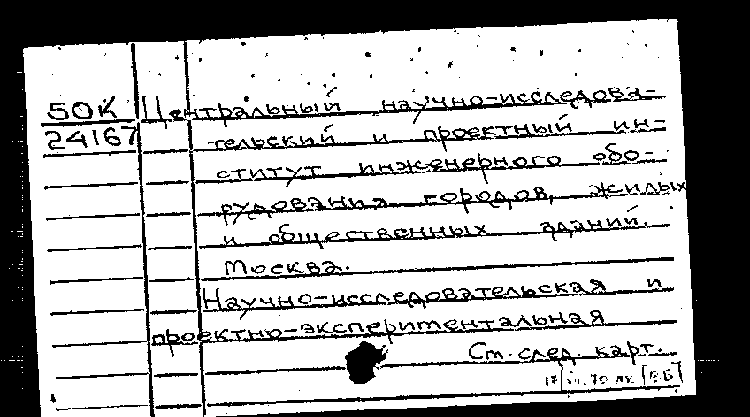 50К Центральный научно-исследова-
24167 тельский и проектный ин-
ститут инженерного обо-
рудования городов, жилых
и общественных зданий.
Москва.
Научно-исследовательская и
проектно-экспериментальная
См. след. карт.